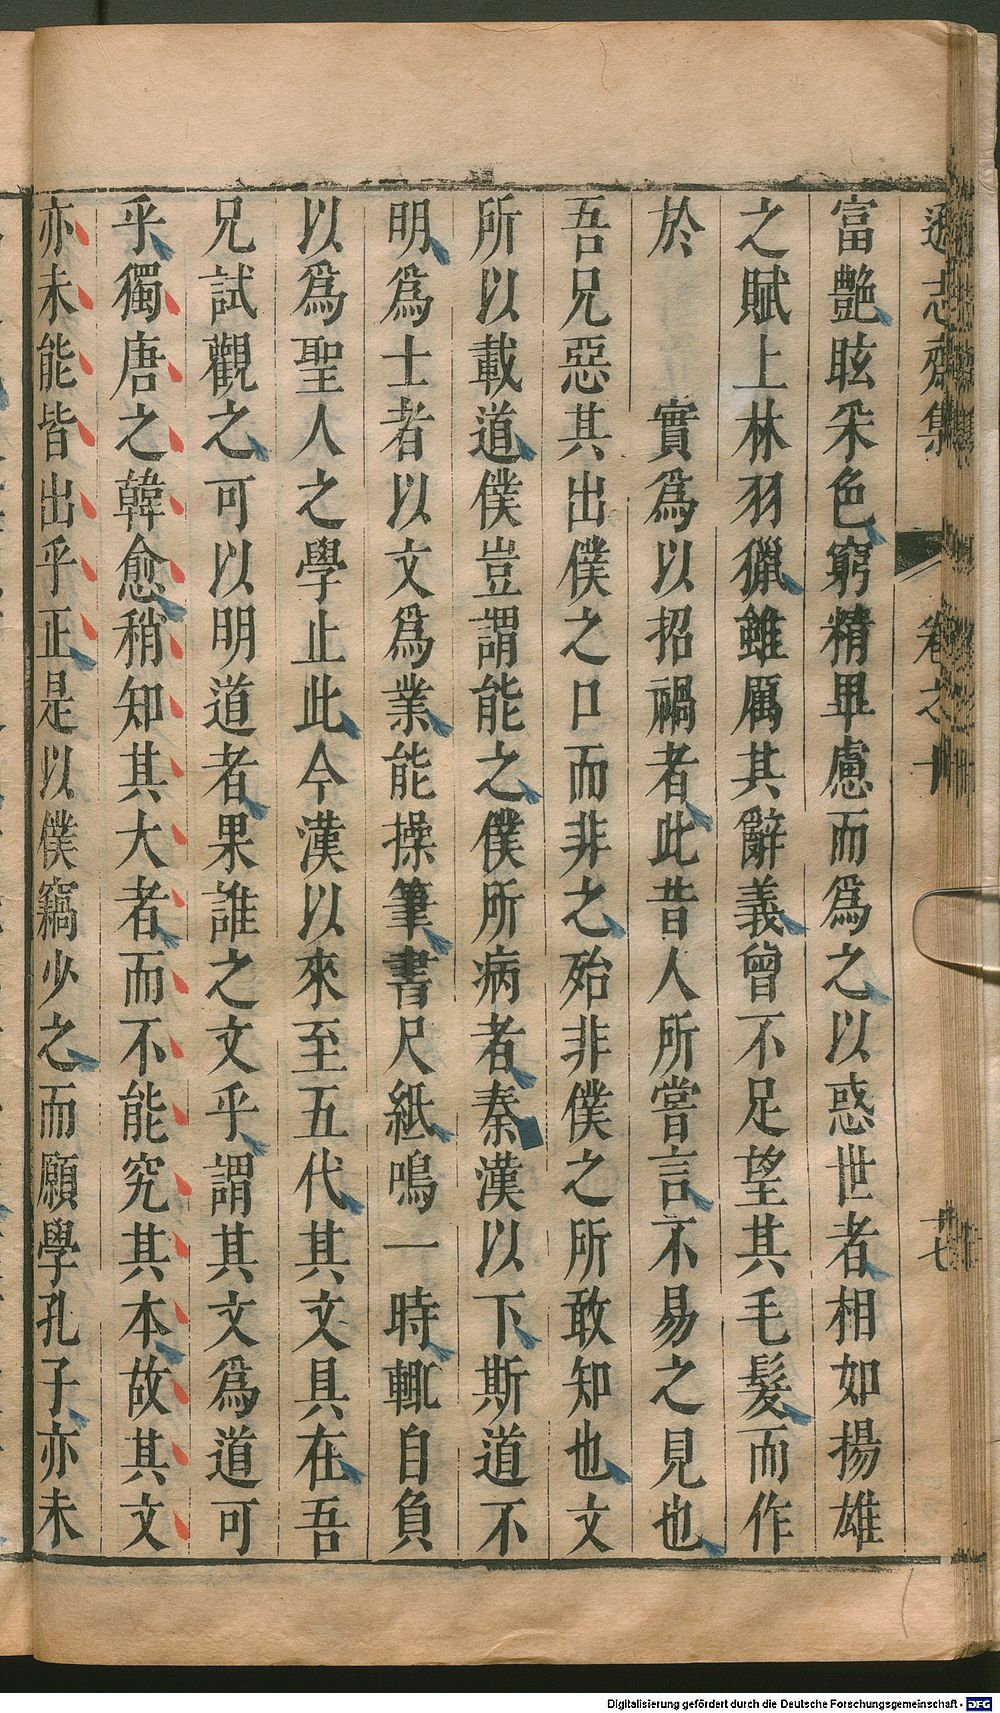 遜志齋集 卷之十 十七
富艷昡采色窮精畢慮而爲之以惑世者相如揚雄
之賦上林羽獵雖厲其辭義曾不足望其毛髮而作
於 實爲以招禍者此昔人所嘗言不易之見也
吾兄惡其出僕之口而非之殆非僕之所敢知也文
所以載道僕豈謂能之僕所病者秦漢以下斯道不
明爲士者以文爲業能操筆書尺紙鳴一時輒自負
以爲聖人之學止此今漢以來至五代其文具在吾
兄試觀之可以明道者果誰之文乎謂其文爲道可
乎獨唐之韓愈稍知其大者而不能究其本故其文
亦未能皆出乎正是以僕竊少之而願學孔子亦未
Digitalisierung gefördert durch die Deutsche Forschungsgemeinschaft - DFG